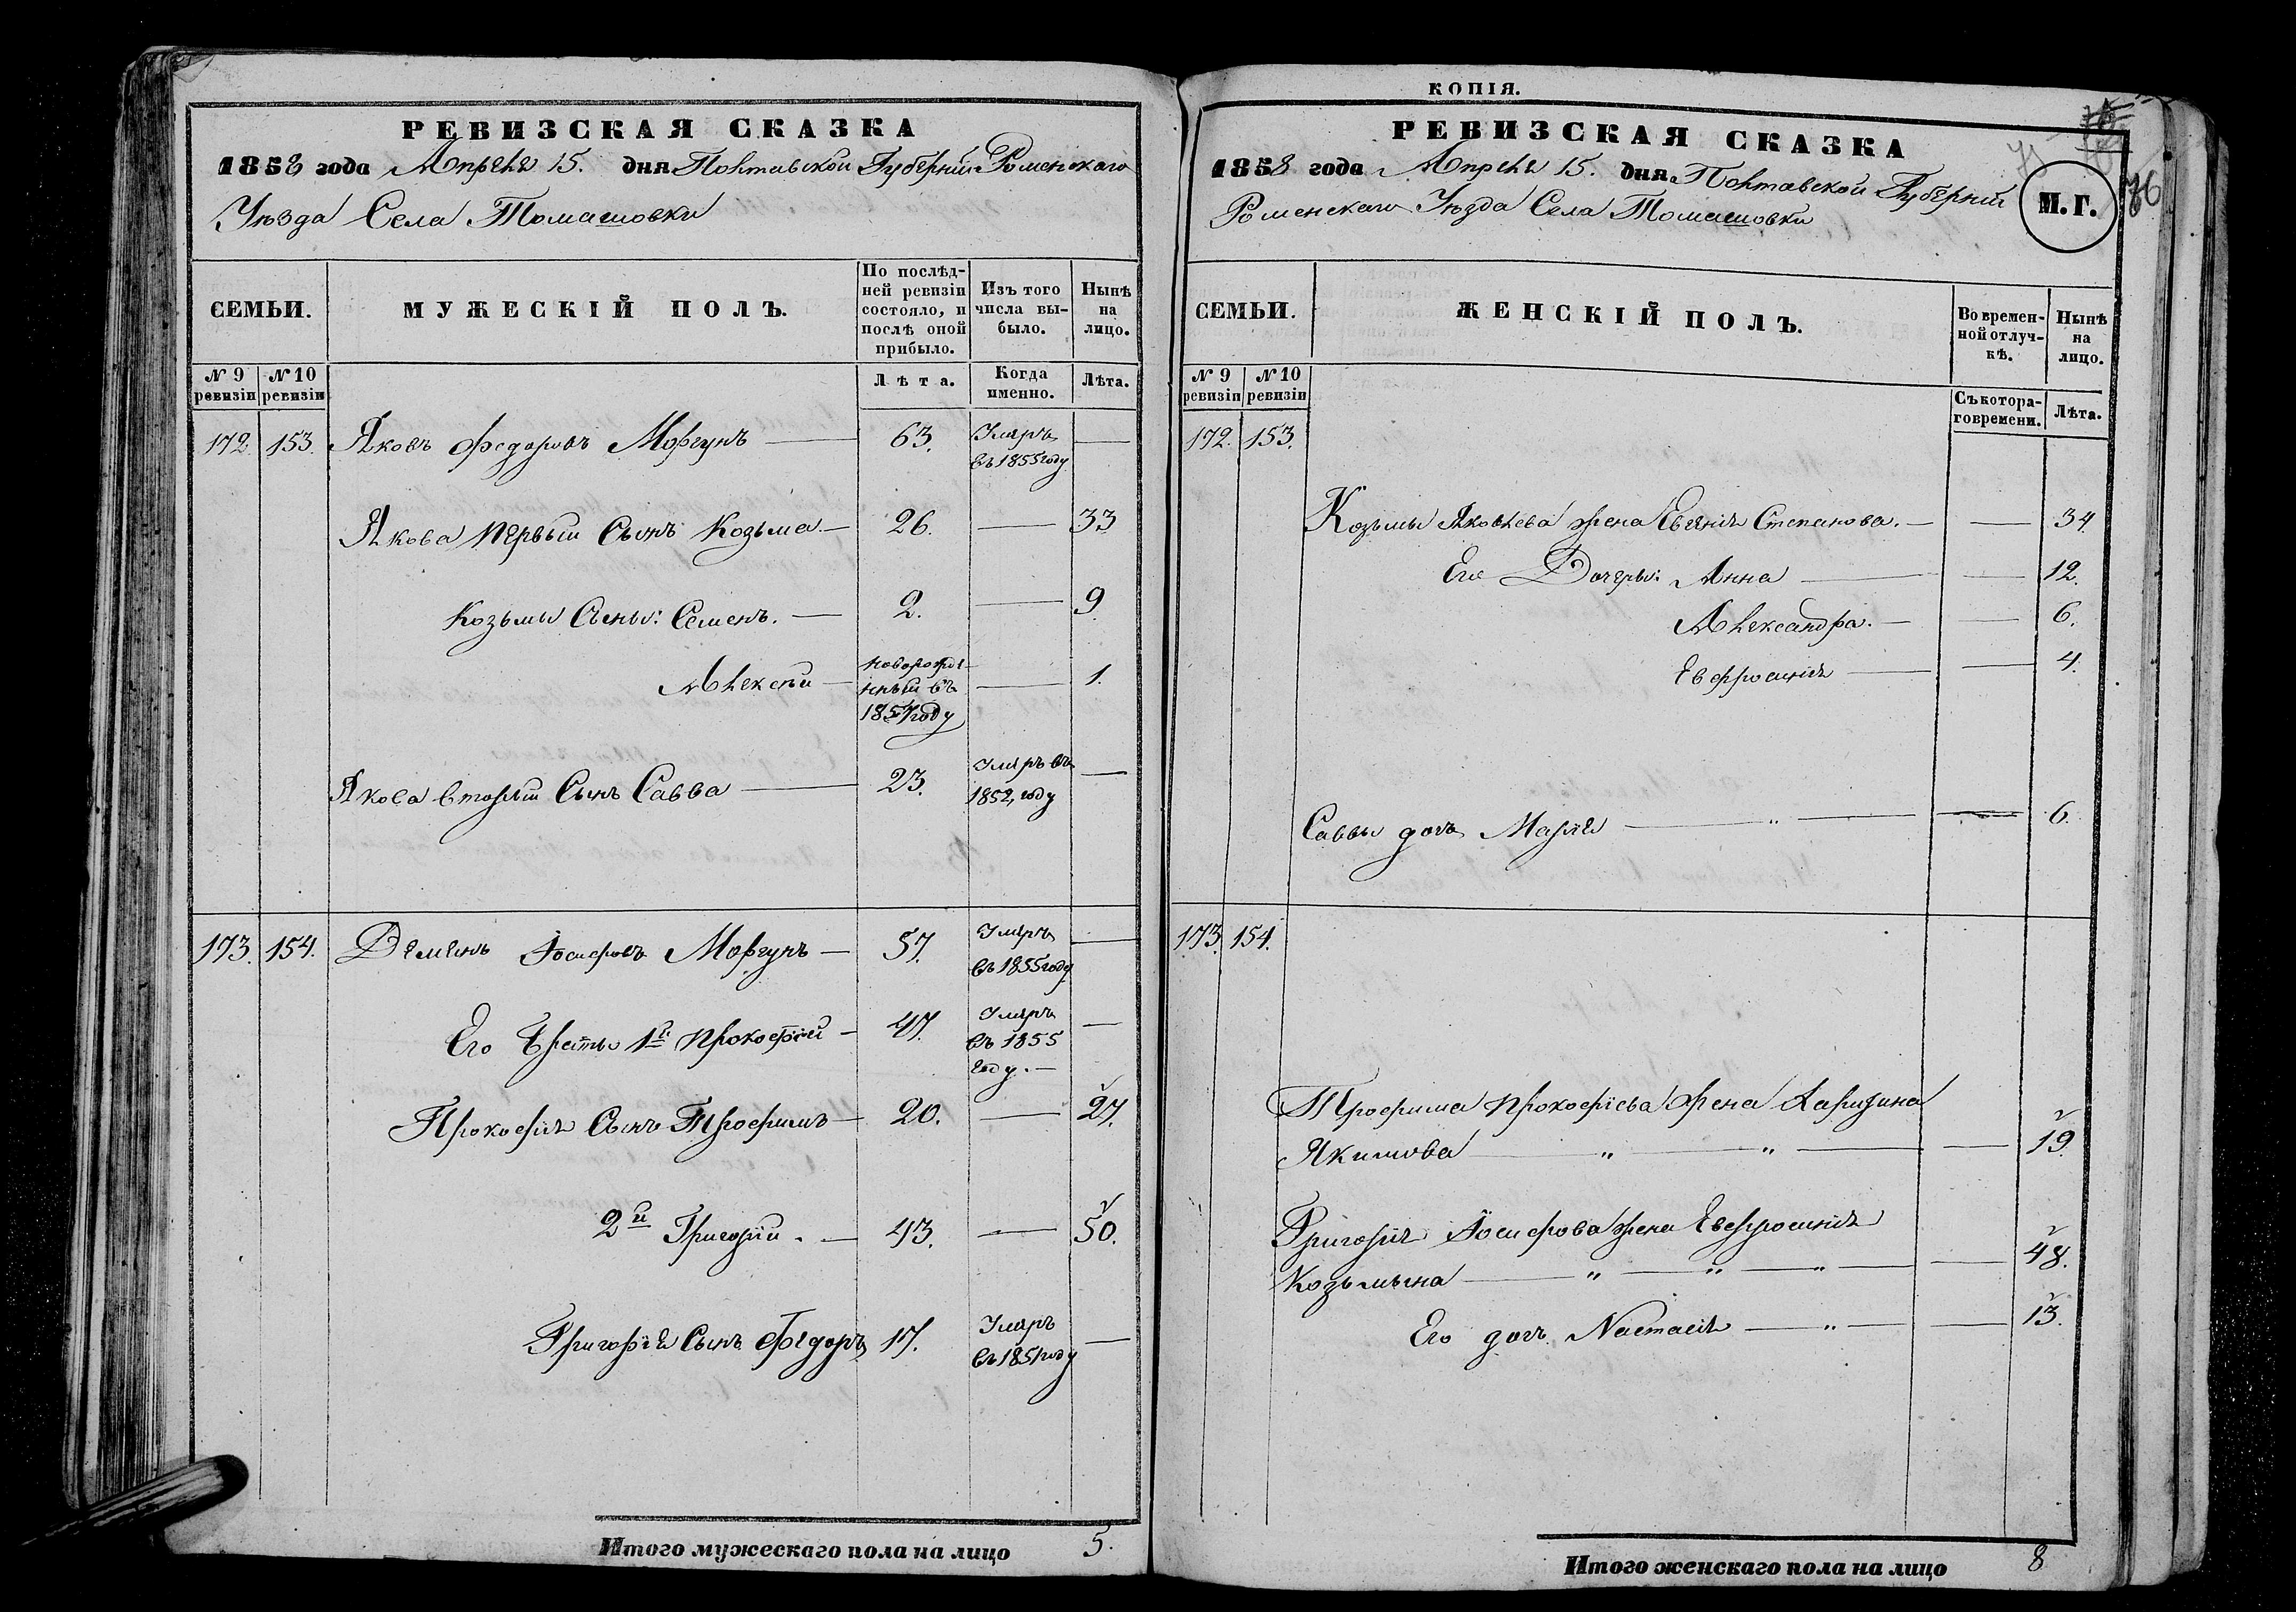 РЕВИЗСКАЯ СКАЗКА
1858 года Апреля 15. дня Полтавской Губерніи Роменскаго
Уѣзда Села Томашовки
СЕМЬИ.
МУЖЕСКІЙ ПОЛЪ.
По послѣд-
ней ревизіи
состояло, и
послѣ оной
прибыло.
Изъ того
числа вы-
было.
Нынѣ
на
лицо.
№ 9
ревизіи
№ 10
ревизіи
Лѣта.
Когда
именно.
Лѣта.
172. 153. Яковъ Федоровъ Моргунъ — 63. Умеръ —
въ 1855 году
Якова первый Сынъ Козьма. — 26. — 33
Козьмы Сыны: Семенъ. — 2. — 9
Алексѣй — новорожде- — 1.
нный въ
1857 году
Якова второй Сынъ Савва — 23. Умеръ въ —
1852, году
173. 154. Деменъ Іосифовъ Моргунъ — 57. Умеръ —
въ 1855 году
Его Братья 1й Прокофій — 47. Умеръ —
въ 1855
году. —
Прокофія Сынъ Трофимъ — 20. — 27.
2й Григорій. — 43. — 50.
Григорія Сынъ Федоръ 17. Умеръ —
въ 1851 году
Итого мужескаго пола на лицо 5.
КОПІЯ.
РЕВИЗСКАЯ СКАЗКА
1858 года Апреля 15. дня Полтавской Губерніи
Роменскаго Уѣзда Села Томашовки
М. Г.
76
СЕМЬИ.
ЖЕНСКІЙ ПОЛЪ.
Во времен-
ной отлуч-
кѣ.
Нынѣ
на
лицо.
№ 9
ревизіи
№ 10
ревизіи
Съ котора-
го времени.
Лѣта.
172. 153.
Козьмы Яковлева жена Евгенія Степанова. — — 34
Его Дочеры: Анна — — 12.
Александра. — — 6.
Евфросинія — — 4.
Саввы дочь Марія — " — — 6.
173. 154.
Трофима Прокофіева жена
Якимова — " — " — — 19
Григорія Іосифова жена Евфросинія
Козьмына — " — " — " — — 48.
Его дочь Настасія — " — — 13.
Итого женскаго пола на лицо 8